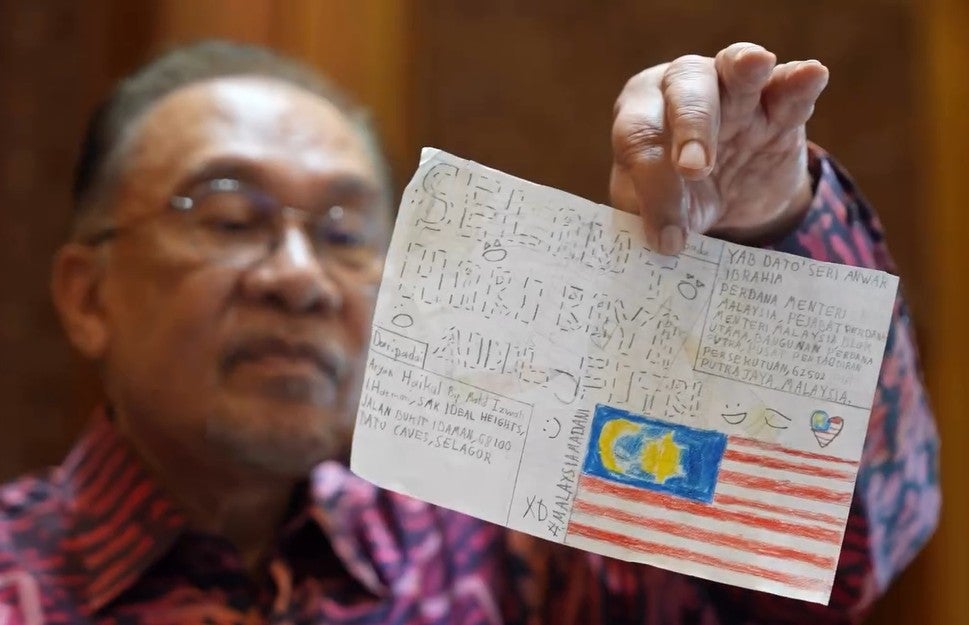 HARI RAYA
Daripada:
Haikal
SMK IDEAL HEIGHTS,
JALAN BUKIT IDAMAN, 68100
BATU CAVES, SELAGOR
YAB DATO' SERI ANWAR
IBRAHIM
PERDANA MENTERI
MALAYSIA, PEJABAT PERDANA
MENTERI MALAYSIA BLOK
UTAMA, BANGUNAN PERDANA
PUTRA, PUSAT PENTADBIRAN
PERSEKUTUAN, 62502
PUTRAJAYA, MALAYSIA.
XD
#MALAYSIAMADANI